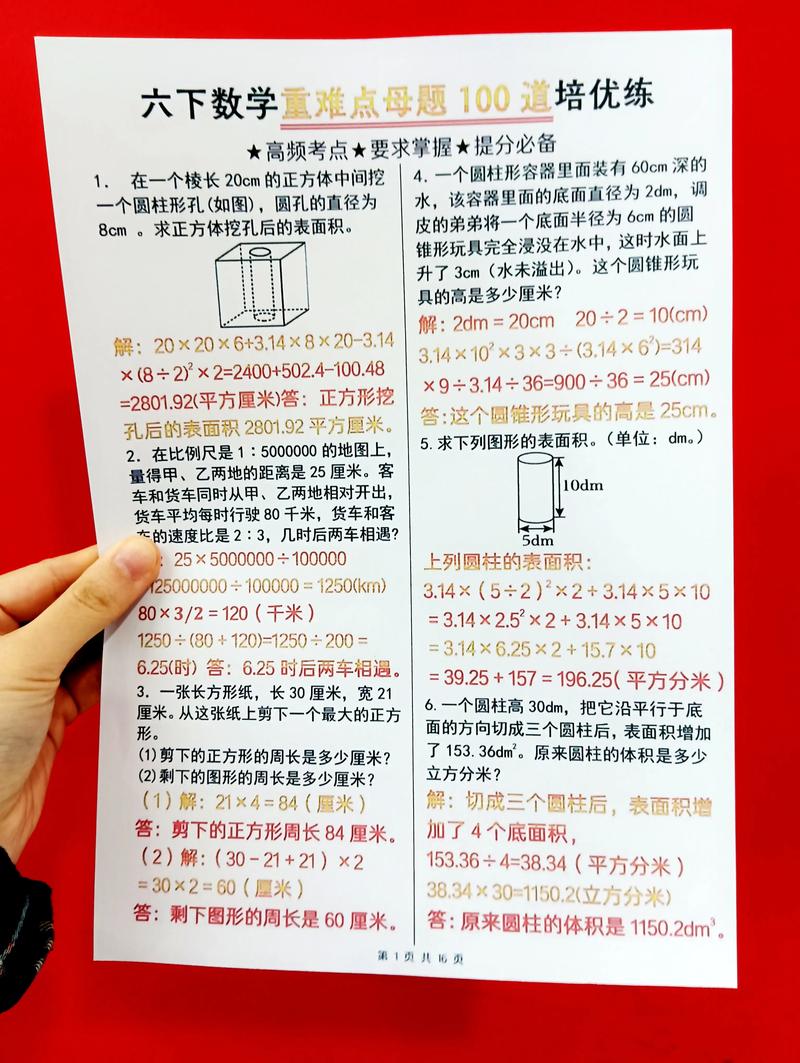 六下数学重难点母题 100 道培优练
★高频考点★要求掌握★提分必备
1. 在一个棱长 20cm 的正方体中间挖
一个圆柱形孔(如图)，圆孔的直径为
8cm 。求正方体挖孔后的表面积。
解：20×20×6+3.14×8×20-3.14
×(8÷2)²×2=2400+502.4-100.48
=2801.92(平方厘米)答：正方形挖
孔后的表面积 2801.92 平方厘米。
2. 在比例尺是 1：5000000 的地图上，
量得甲、乙两地的距离是 25 厘米。客
车和货车同时从甲、乙两地相对开出，
货车平均每时行驶 80 千米，货车和客
的速度比是 2：3，几时后两车相遇?
：25×5000000÷100000
125000000÷100000=1250(km)
80×3/2=120（千米）
1250÷(80+120)=1250÷200=
6.25(时) 答：6.25 时后两车相遇。
3. 一张长方形纸，长 30 厘米，宽 21
厘米。从这张纸上剪下一个最大的正方
形。
(1)剪下的正方形的周长是多少厘米?
(2)剩下的图形的周长是多少厘米?
（1）解：21×4=84（厘米）
答：剪下的正方形周长 84 厘米。
（2）解：（30-21+21）×2
=30×2=60（厘米）
答：剩下图形的周长是 60 厘米。
4. 一个圆柱形容器里面装有 60cm 深的
水，该容器里面的底面直径为 2dm，调
皮的弟弟将一个底面半径为 6cm 的圆
锥形玩具完全浸没在水中，这时水面上
升了 3cm（水未溢出）。这个圆锥形玩
具的高是多少厘米?
解：2dm=20cm 20÷2=10(cm)
3.14×10²×3×3÷(3.14×6²)=314
×9÷3.14÷36=900÷36=25(cm)
答：这个圆锥形玩具的高是 25cm。
5. 求下列图形的表面积。（单位：dm。）
10dm
5dm
上列圆柱的表面积：
3.14×（5÷2）²×2+3.14×5×10
=3.14×2.5²×2+3.14×5×10
=3.14×6.25×2+15.7×10
=39.25+157=196.25（平方分米）
6. 一个圆柱高 30dm，把它沿平行于底
面的方向切成三个圆柱后，表面积增加
了 153.36dm²。原来圆柱的体积是多少
立方分米?
解：切成三个圆柱后，表面积增
加了 4 个底面积，
153.36÷4=38.34（平方分米）
38.34×30=1150.2(立方分米)
答：原来圆柱的体积是 1150.2dm³。
第 1 页 共 16 页